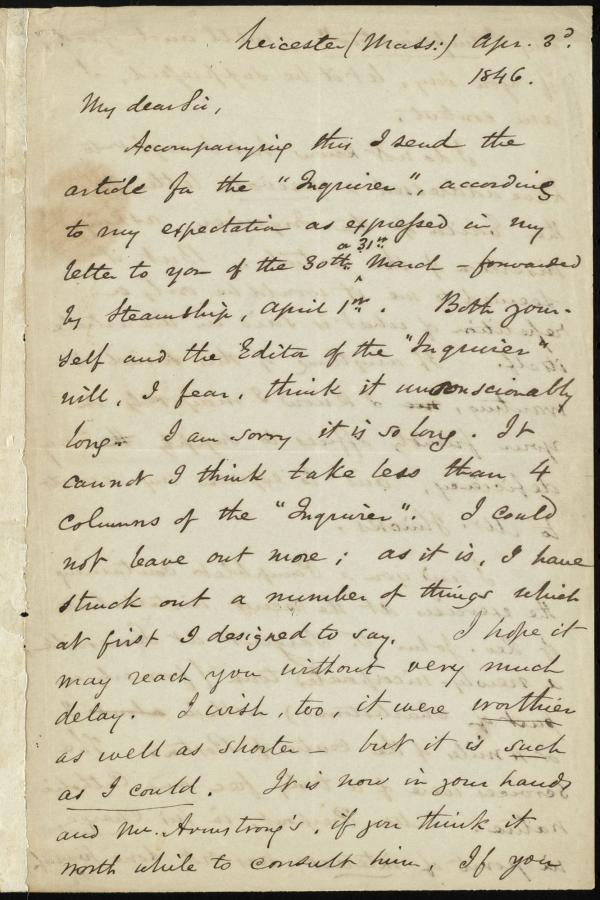 Leicester (Mass:) Apr. 3d.
1846.
My dear Sir,
Accompanying this I send the
article for the "Inquirer", according
to my expectation as expressed in my
a 31st
letter to you of the 30th March - forwarded
by Steamship, April 1st. Both your-
self and the Editor of the "Inquirer"
will, I fear, think it unconscionably
long. I am sorry it is so long. It
cannot I think take less than 4
columns of the "Inquirer". I could
not leave out more; as it is, I have
struck out a number of things which
at first I designed to say. I hope it
may reach you without very much
delay. I wish, too, it were worthier
as well as shorter - but it is such
as I could. It is now in your hands
and Mr. Armstrong's, if you think it
worth while to consult him. If you